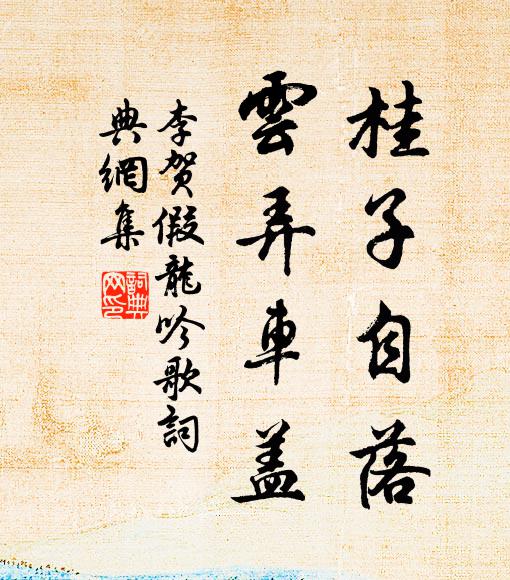 桂子自落
雲弄車蓋
李賀假龍吟歌詞
典網集
詞典
网印